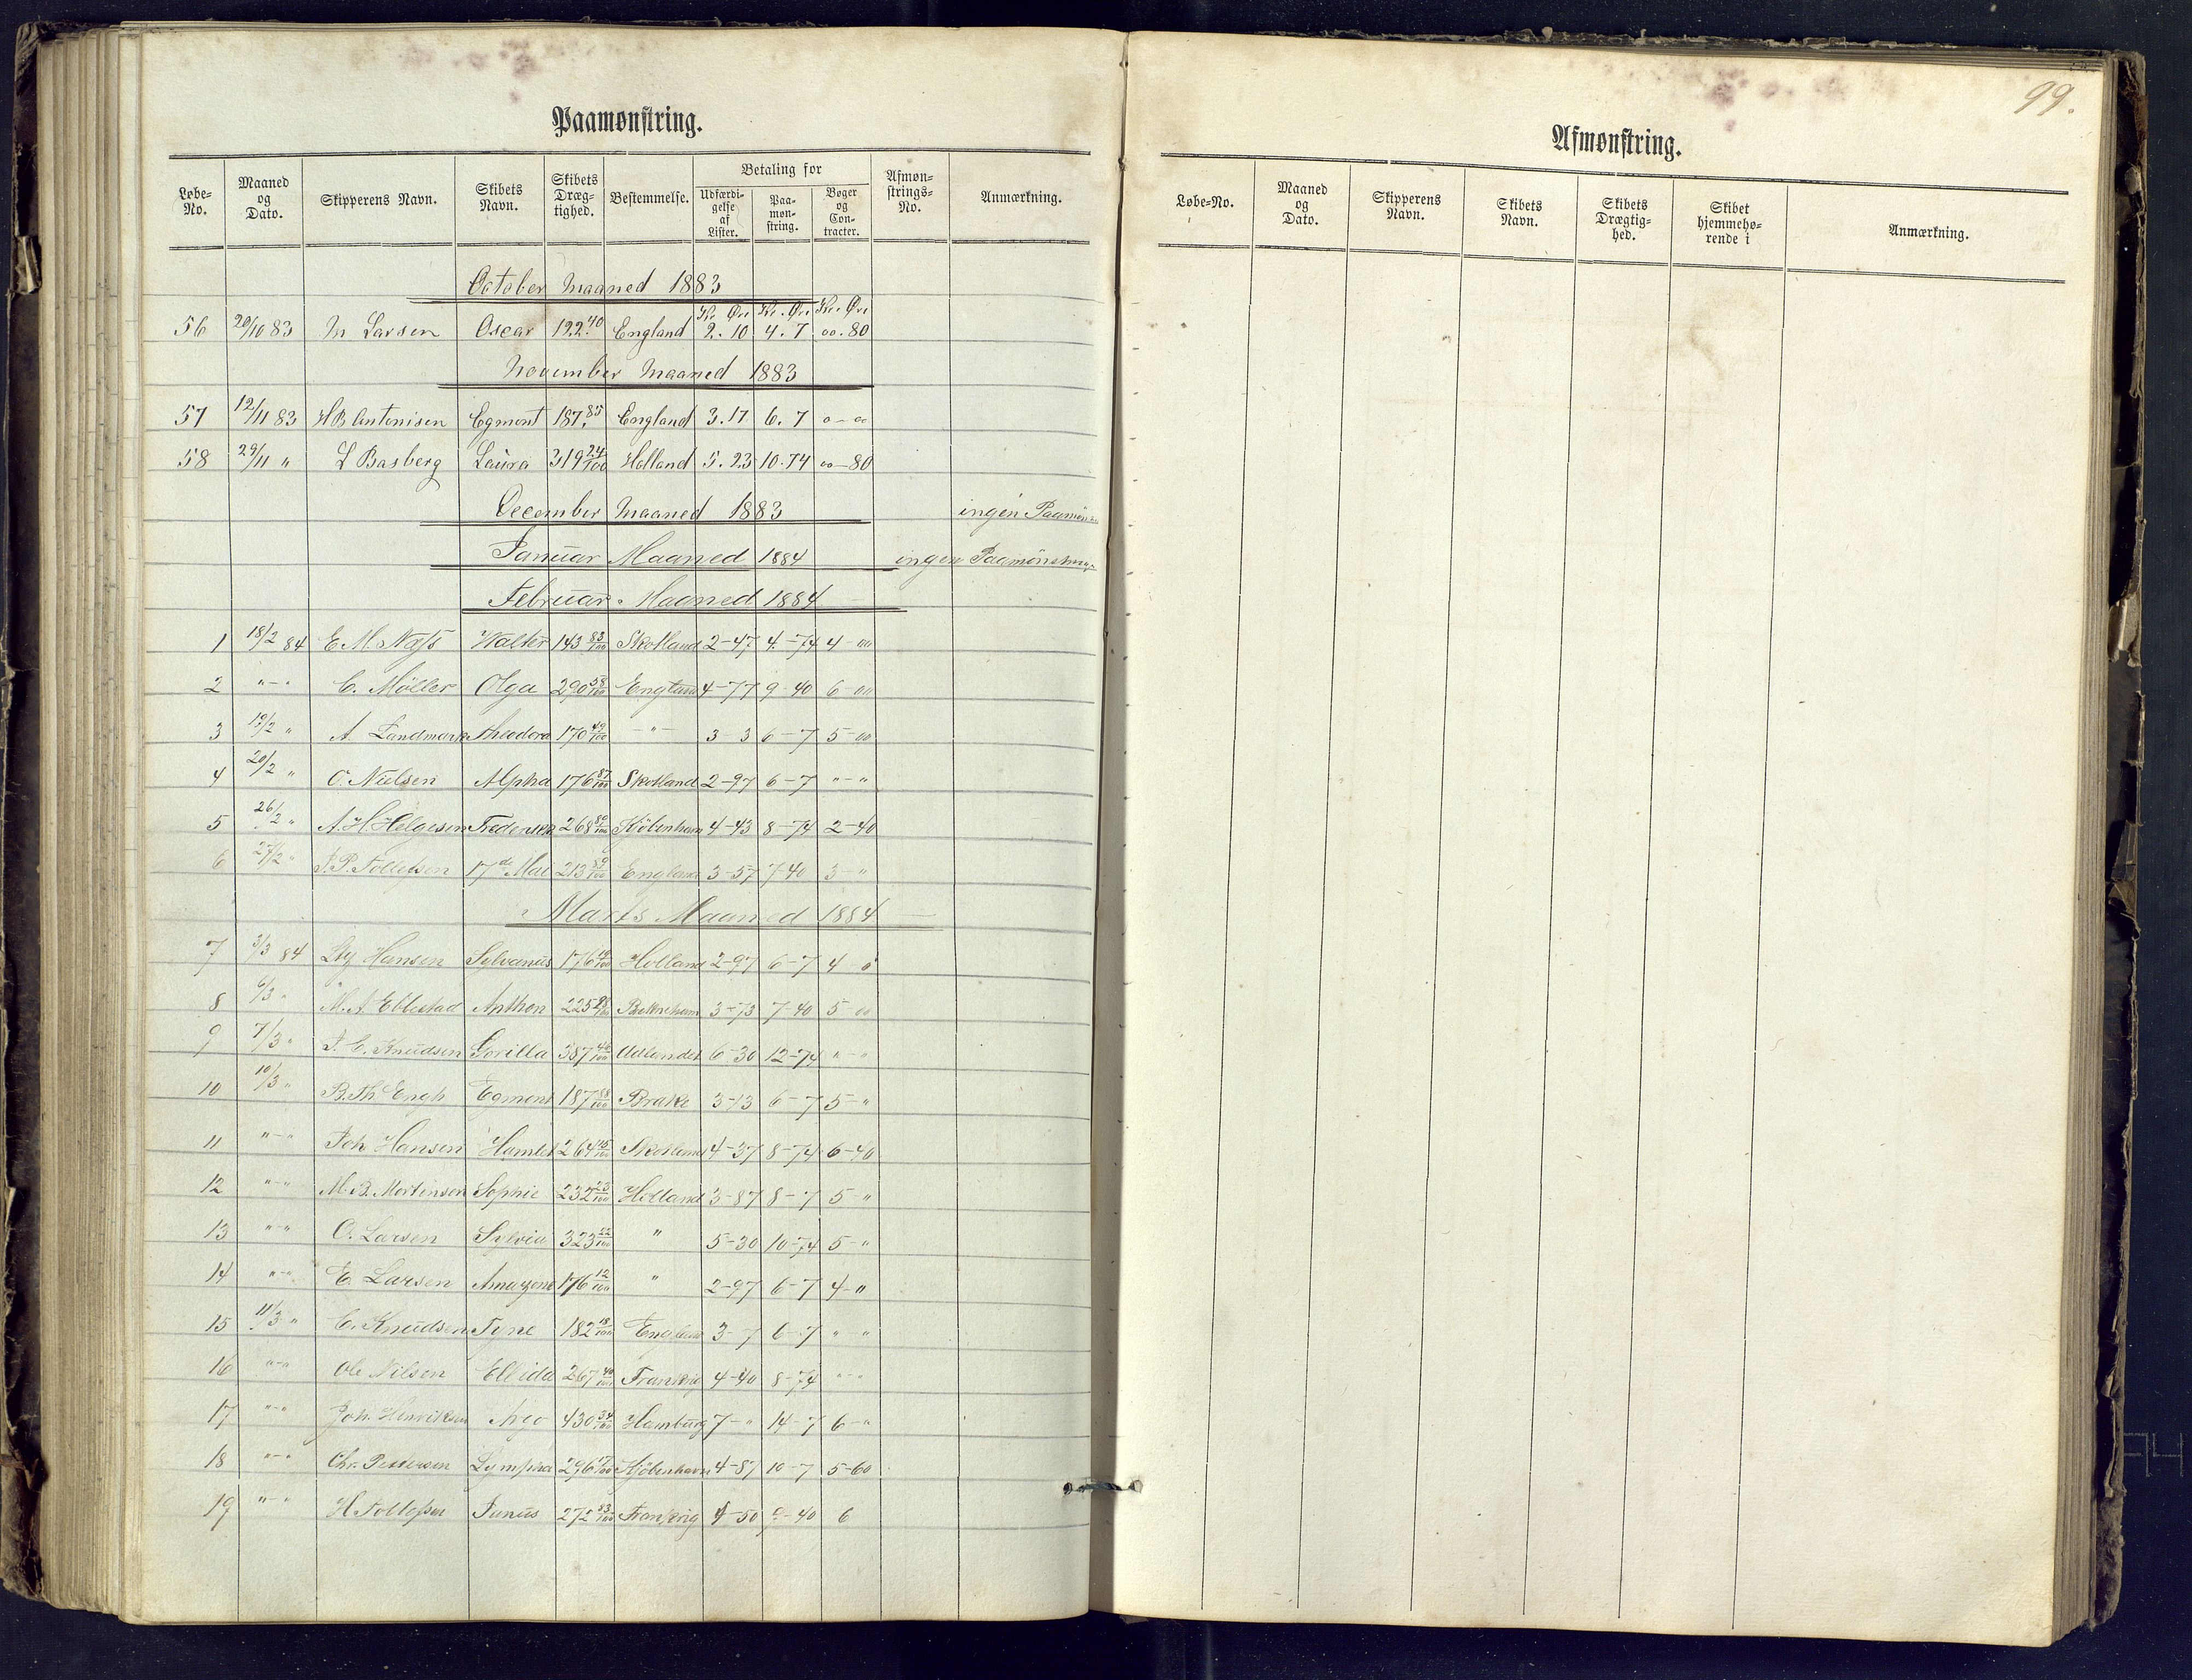 Paamønstring.
Løbe-No. | Maaned og Dato. | Skipperens Navn. | Skibets Navn. | Skibets Dræg-tighed. | Bestemmelse. | Betaling for | Udfærdi-gelse af Lister. | Paa-møn-string. | Bøger og Con-tracter. | Afmøn-strings-No. | Anmærkning.
October Maaned 1883
Kr. Øre Kr. Øre Kr. Øre
56 20/10 83 M Larsen Oscar 122.40 England 2.10 4.7 00.80
November Maaned 1883
57 12/11 83 H B Antonisen Egmont 187.85 England 3.17 6.7 0-00
58 29/11 " L Basberg Laura 319 24/100 Holland 5.23 10.74 00-80
December Maaned 1883 ingen
Januar Maaned 1884 ingen
Februar Maaned 1884
1 18/2 84 E. M. Næss Walter 143 83/100 Skotland 2-47 4-74 4-00
2 "-" C. Møller Olga 290 58/100 England 4-77 9-40 6-00
3 19/2 " A. Landmark Theodora 170 49/100 -"- 3-3 6-7 5-00
4 20/2 " O. Nielsen Alpha 176 87/100 Skotland 2-97 6-7 "-"
5 26/2 " A. H. Helgesen 268 80/100 Kjöbenhavn 4-43 8-74 2-40
6 27/2 " J. P. Tollefsen 17de Mai 213 89/100 England 3-57 7-40 3-"
Marts Maaned 1884
7 3/3 84 Hansen Sylvanus 176 Holland 2-97 6-7 4-0
8 6/3 " M. A. Ellestad Anthon 225 98/100 3-73 7-40 5-00
9 7/3 " J. C. Knudsen Gorilla 387 46/100 Udlandet 6-30 12-74 "-"
10 10/3 " B. Th Engh Egmont 187 88/100 Brake 3-13 6-7 5-"
11 "-" Joh Hansen Hamlet 264 Skotland 4-37 8-74 6-40
12 "-" M. B. Mortinsen Sophie 232 23/100 Holland 3-87 8-7 5-"
13 "-" O. Larsen Sylvia 323 22/100 " 5-30 10-74 5-"
14 "-" E Larsen Amazone 176 12/100 " 2-97 6-7 4-"
15 11/3 " C. Knudsen Tyne 182 18/100 England 3-7 6-7 "-"
16 "-" Ole Nilsen Ellida 267 40/100 Frankrig 4-40 8-74 "-"
17 "-" Joh. Henriksen Argo 430 34/100 Hamburg 7-" 14-7 6-"
18 "-" Chr. Pettersen Lympha 296 Kjöbenhavn 4-87 10-7 5-60
19 "-" H Tollefsen Janus 272 83/100 Frankrig 4-50 9-40 6
99.
Afmønstring.
Løbe-No. | Maaned og Dato. | Skipperens Navn. | Skibets Navn. | Skibets Drægtig-hed. | Skibet hjemmehø-rende i | Anmærkning.